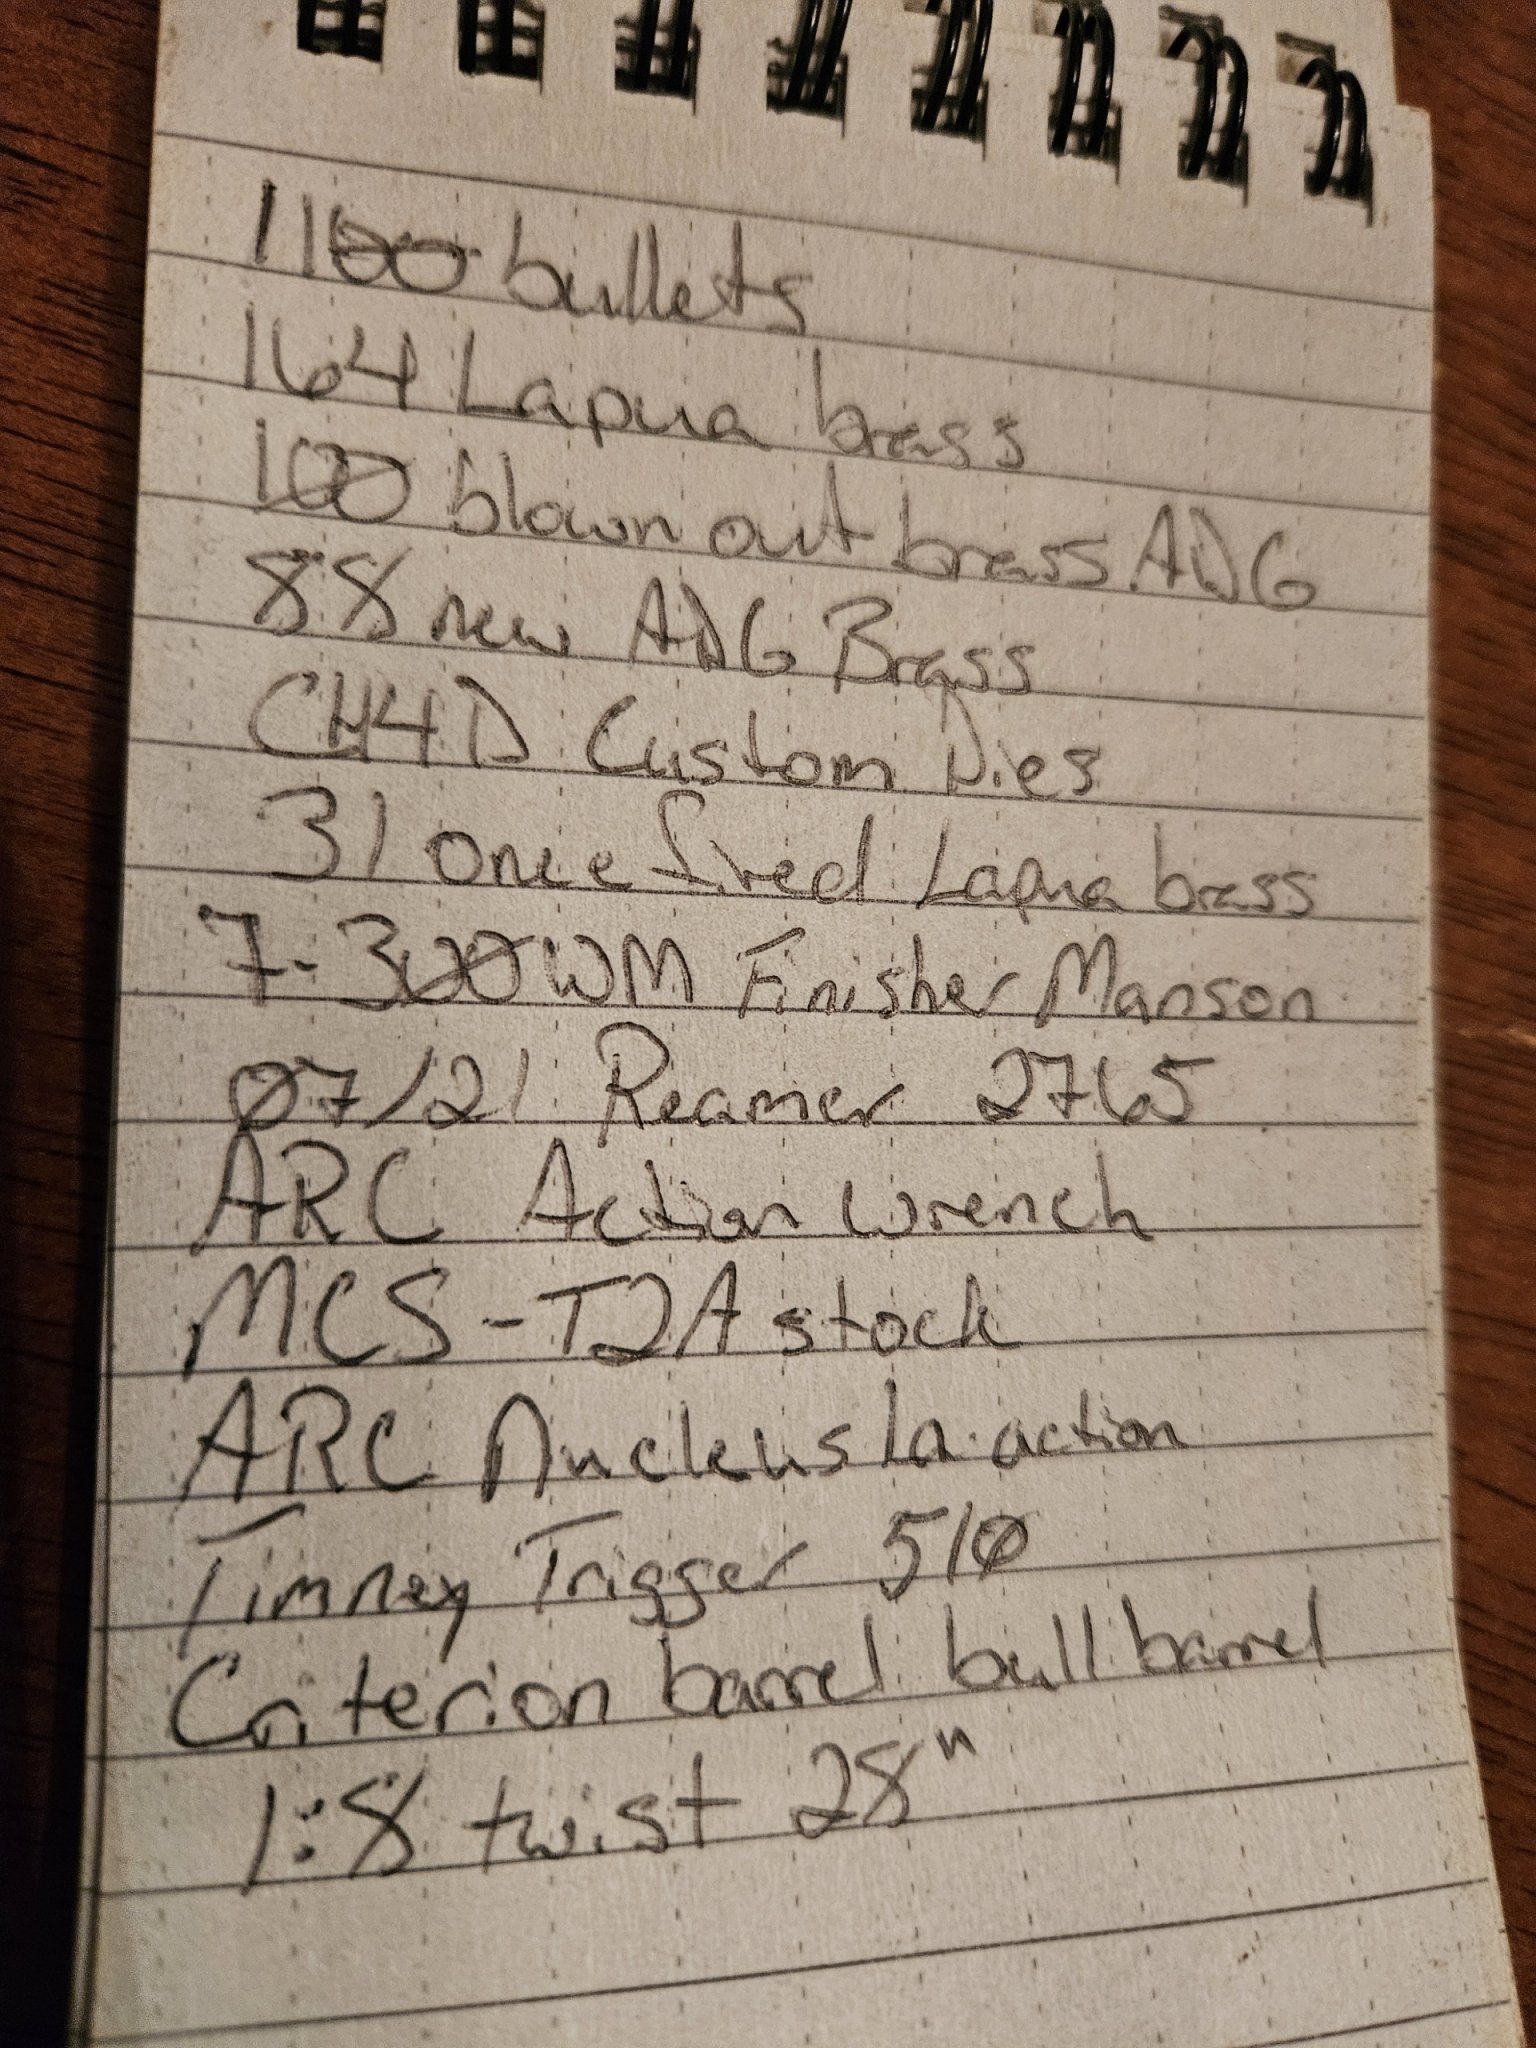 1100 bullets
164 Lapua brass
100 blown out brass ADG
88 new ADG Brass
CH4D Custom Dies
31 once fired Lapua brass
7-300WM Finisher Manson
07/21 Reamer 2765
ARC Action wrench
MCS-T2A stock
ARC Nucleus la action
Timney Trigger 510
Criterion barrel bull barrel
1:8 twist 28"